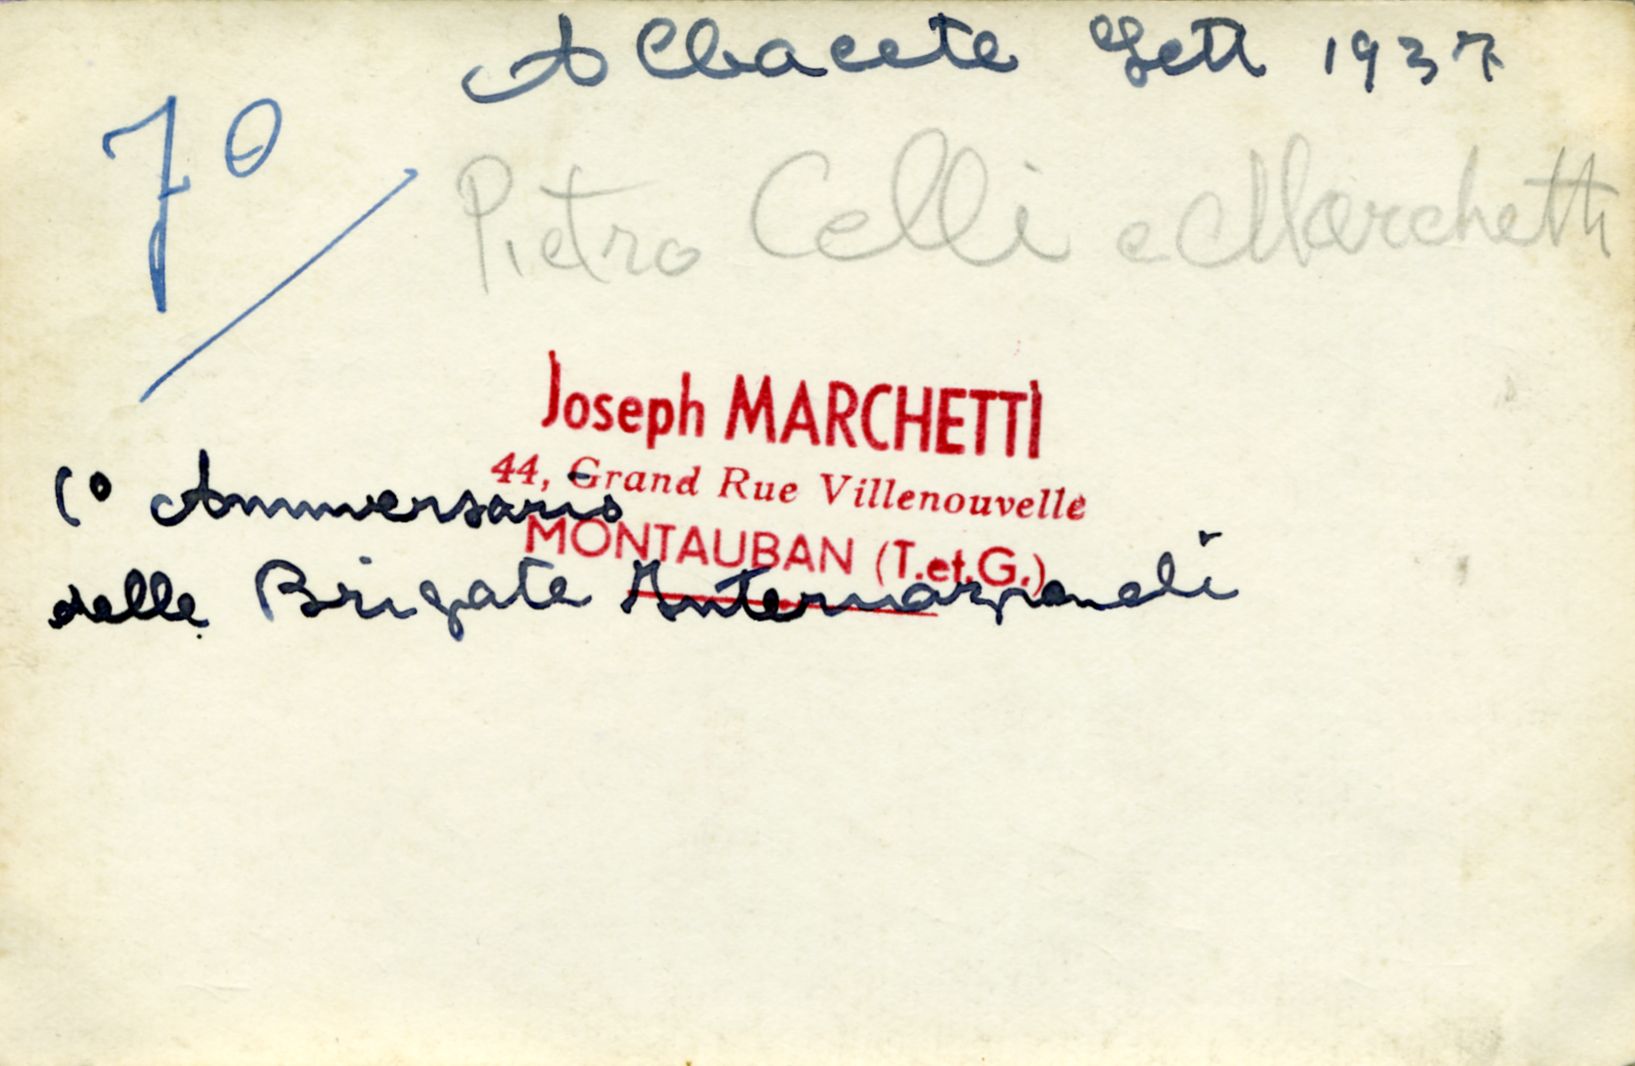 Albacete Sett 1937
70
Pietro Celli e Marchetti
Joseph MARCHETTI
44, Grand Rue Villenouvelle
MONTAUBAN (T.et.G.)
1° Anniversario
delle Brigate Internazionali